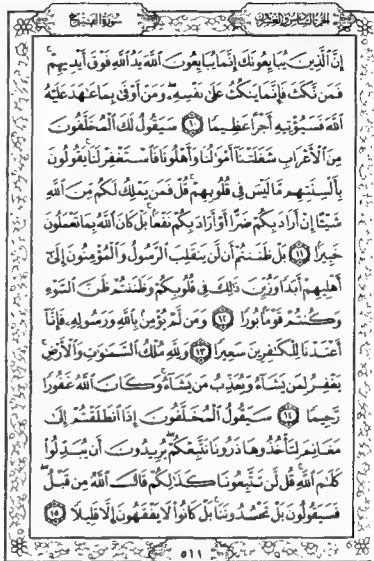 الجزء السادس والعشرون
سورة الفتح
إِنَّ ٱلَّذِينَ يُبَايِعُونَكَ إِنَّمَا يُبَايِعُونَ ٱللَّهَ يَدُ ٱللَّهِ فَوْقَ أَيْدِيهِمْ ۚ
فَمَن نَّكَثَ فَإِنَّمَا يَنكُثُ عَلَىٰ نَفْسِهِۦ ۖ وَمَنْ أَوْفَىٰ بِمَا عَٰهَدَ عَلَيْهُ
ٱللَّهَ فَسَيُؤْتِيهِ أَجْرًا عَظِيمًا ۝١٠ سَيَقُولُ لَكَ ٱلْمُخَلَّفُونَ
مِنَ ٱلْأَعْرَابِ شَغَلَتْنَآ أَمْوَٰلُنَا وَأَهْلُونَا فَٱسْتَغْفِرْ لَنَا ۚ يَقُولُونَ
بِأَلْسِنَتِهِم مَّا لَيْسَ فِى قُلُوبِهِمْ ۚ قُلْ فَمَن يَمْلِكُ لَكُم مِّنَ ٱللَّهِ
شَيْـًٔا إِنْ أَرَادَ بِكُمْ ضَرًّا أَوْ أَرَادَ بِكُمْ نَفْعًۢا ۚ بَلْ كَانَ ٱللَّهُ بِمَا تَعْمَلُونَ
خَبِيرًۢا ۝١١ بَلْ ظَنَنتُمْ أَن لَّن يَنقَلِبَ ٱلرَّسُولُ وَٱلْمُؤْمِنُونَ إِلَىٰٓ
أَهْلِيهِمْ أَبَدًا وَزُيِّنَ ذَٰلِكَ فِى قُلُوبِكُمْ وَظَنَنتُمْ ظَنَّ ٱلسَّوْءِ
وَكُنتُمْ قَوْمًۢا بُورًا ۝١٢ وَمَن لَّمْ يُؤْمِنۢ بِٱللَّهِ وَرَسُولِهِۦ فَإِنَّآ
أَعْتَدْنَا لِلْكَٰفِرِينَ سَعِيرًا ۝١٣ وَلِلَّهِ مُلْكُ ٱلسَّمَٰوَٰتِ وَٱلْأَرْضِ ۚ
يَغْفِرُ لِمَن يَشَآءُ وَيُعَذِّبُ مَن يَشَآءُ ۚ وَكَانَ ٱللَّهُ غَفُورًا
رَّحِيمًا ۝١٤ سَيَقُولُ ٱلْمُخَلَّفُونَ إِذَا ٱنطَلَقْتُمْ إِلَىٰ
مَغَانِمَ لِتَأْخُذُوهَا ذَرُونَا نَتَّبِعْكُمْ ۖ يُرِيدُونَ أَن يُبَدِّلُوا۟
كَلَٰمَ ٱللَّهِ ۚ قُل لَّن تَتَّبِعُونَا كَذَٰلِكُمْ قَالَ ٱللَّهُ مِن قَبْلُ ۖ
فَسَيَقُولُونَ بَلْ تَحْسُدُونَنَا ۚ بَلْ كَانُوا۟ لَا يَفْقَهُونَ إِلَّا قَلِيلًا ۝١٥
٥١١